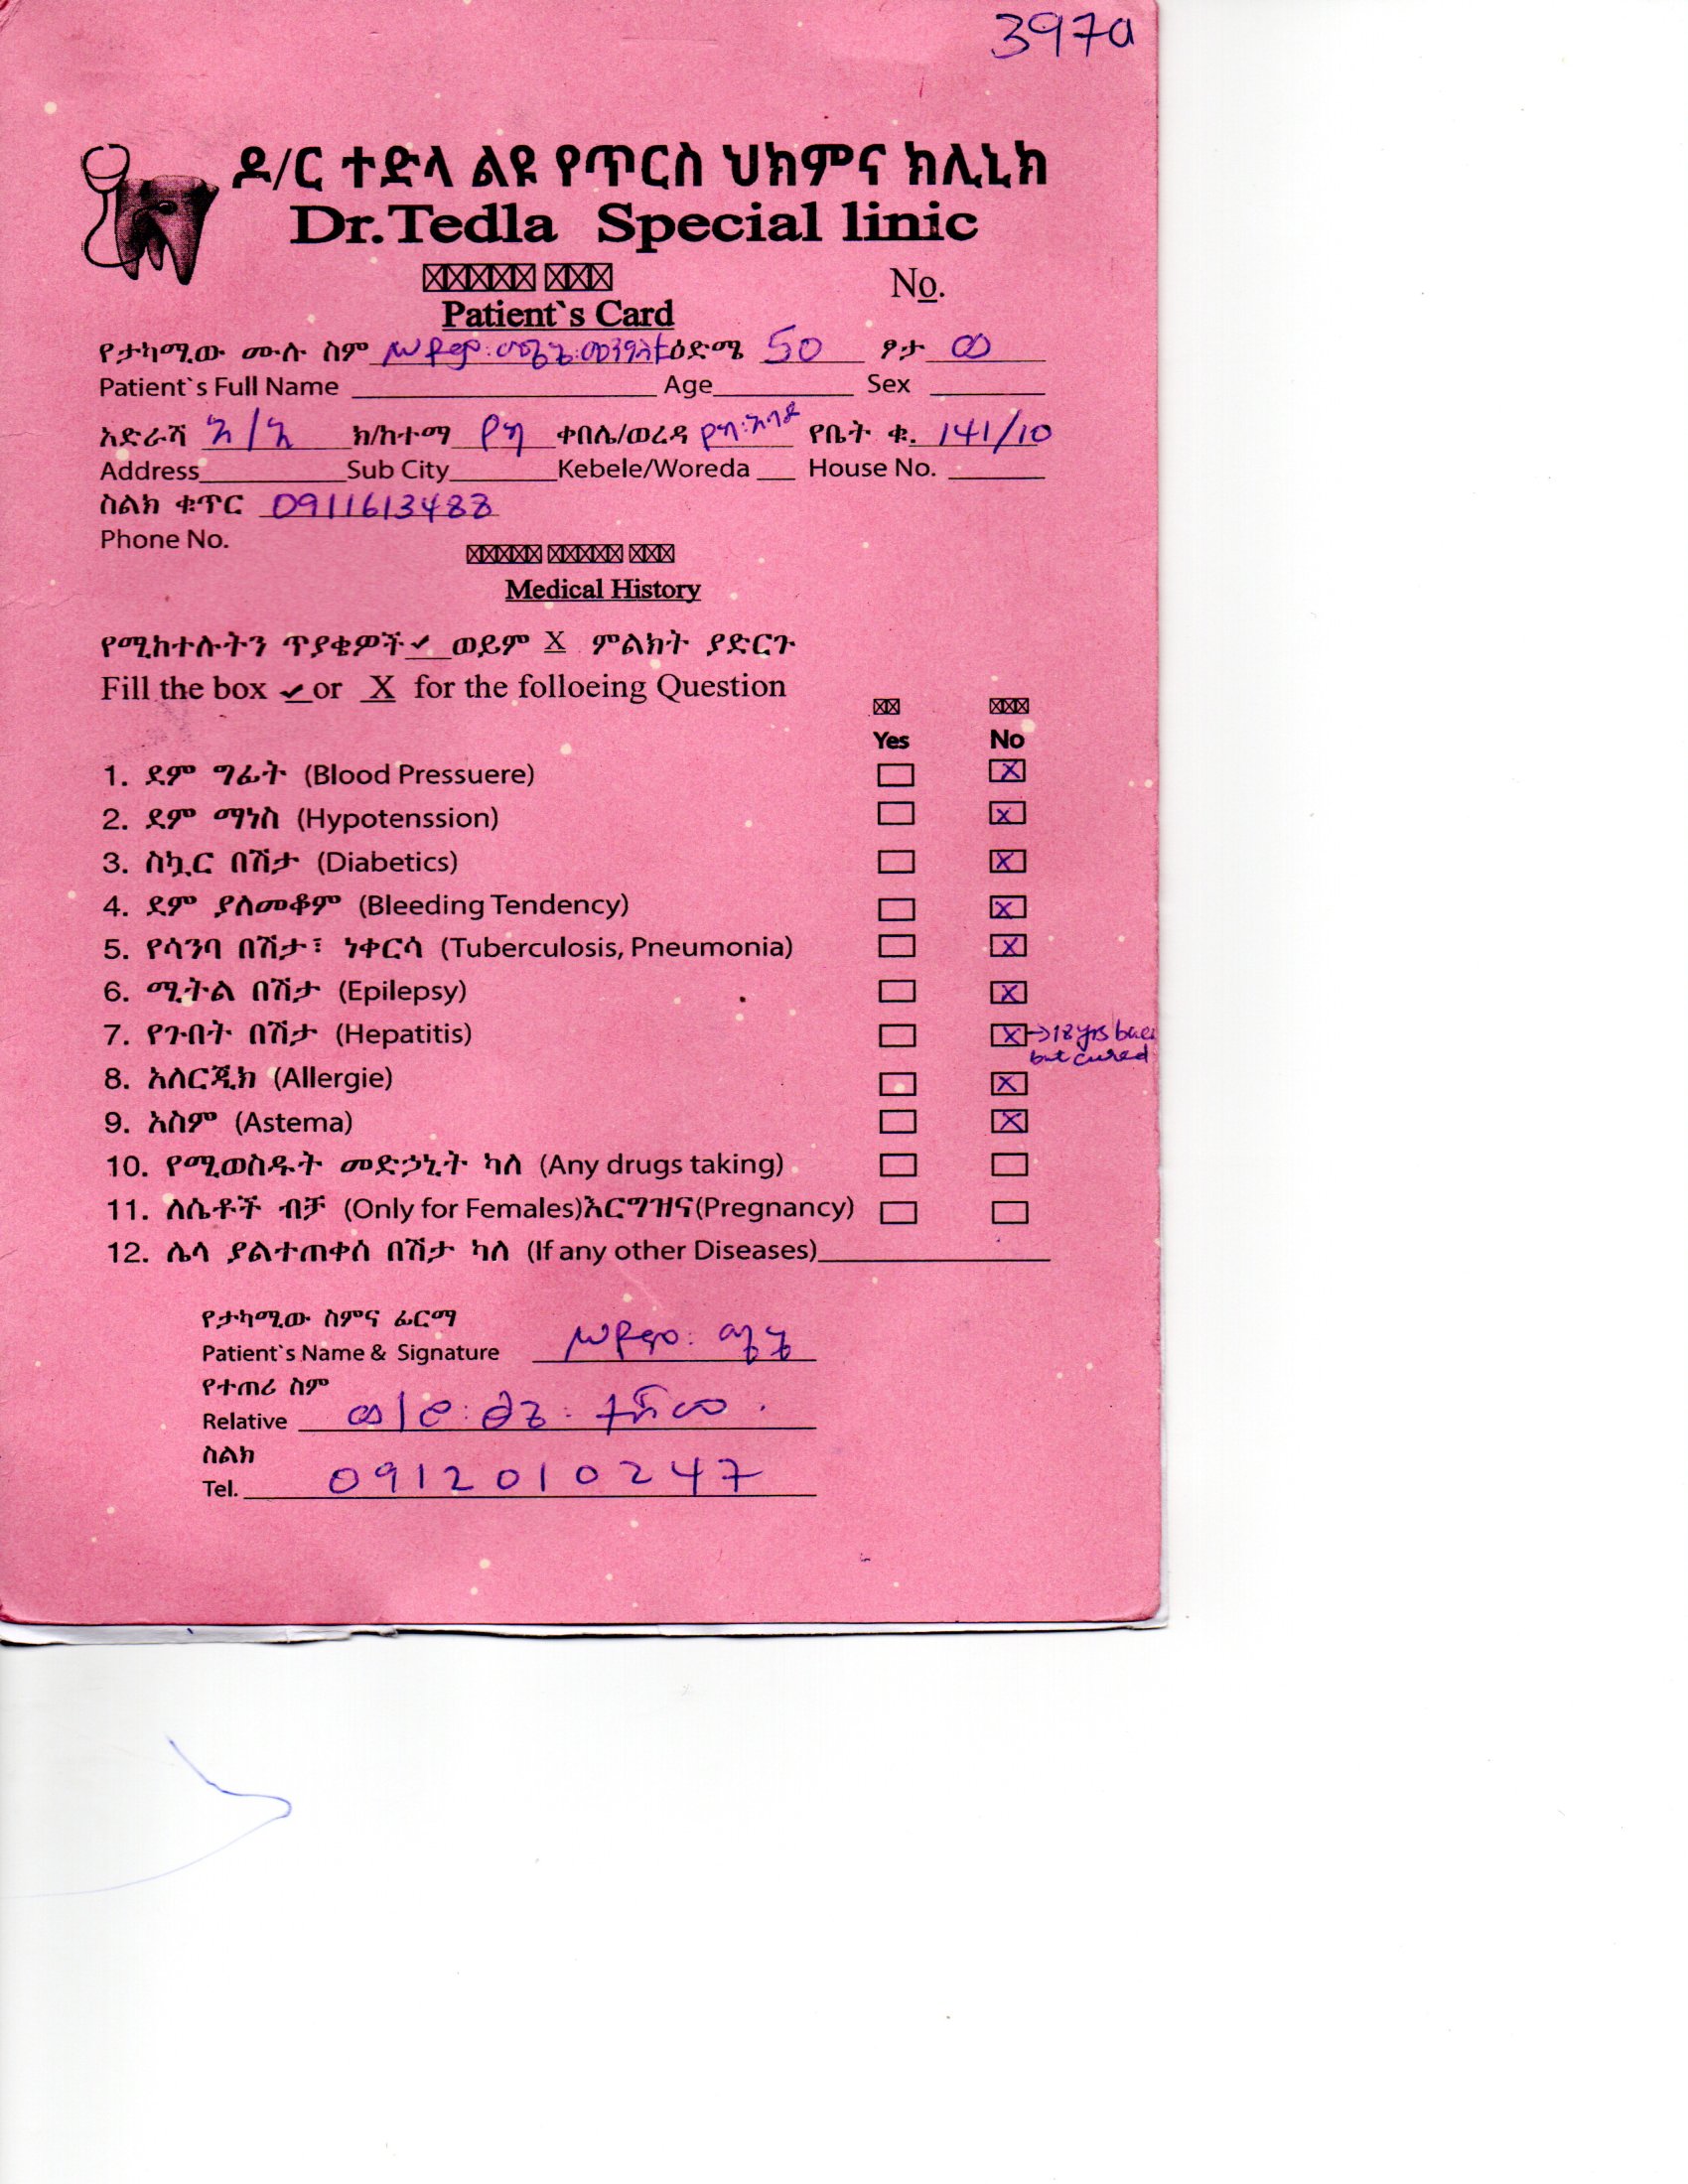 397a
ዶ/ር ተድላ ልዩ የጥርስ ህክምና ክሊኒክ
Dr.Tedla Special linic
No.
Patient`s Card
የታካሚው ሙሉ ስም ዕድሜ 50 ፆታ ወ
Patient`s Full Name Age Sex
አድራሻ አ/አ ክ/ከተማ የካ ቀበሌ/ወረዳ የካ፡አባዶ የቤት ቁ. 141/10
Address Sub City Kebele/Woreda House No.
ስልክ ቁጥር 0911613488
Phone No.
Medical History
የሚከተሉትን ጥያቄዎች ✓ ወይም X ምልክት ያድርጉ
Fill the box ✓ or X for the folloeing Question
Yes No
1. ደም ግፊት (Blood Pressuere) X
2. ደም ማነስ (Hypotenssion) X
3. ስኳር በሽታ (Diabetics) X
4. ደም ያለመቆም (Bleeding Tendency) X
5. የሳንባ በሽታ፣ ነቀርሳ (Tuberculosis, Pneumonia) X
6. ሚትል በሽታ (Epilepsy) X
7. የጉበት በሽታ (Hepatitis) X → 18 yrs
but cured
8. አለርጂክ (Allergie) X
9. አስም (Astema) X
10. የሚወስዱት መድኃኒት ካለ (Any drugs taking)
11. ለሴቶች ብቻ (Only for Females)እርግዝና(Pregnancy)
12. ሌላ ያልተጠቀሰ በሽታ ካለ (If any other Diseases)
የታካሚው ስምና ፊርማ
Patient`s Name & Signature
የተጠሪ ስም
Relative
ስልክ
Tel. 0912010247